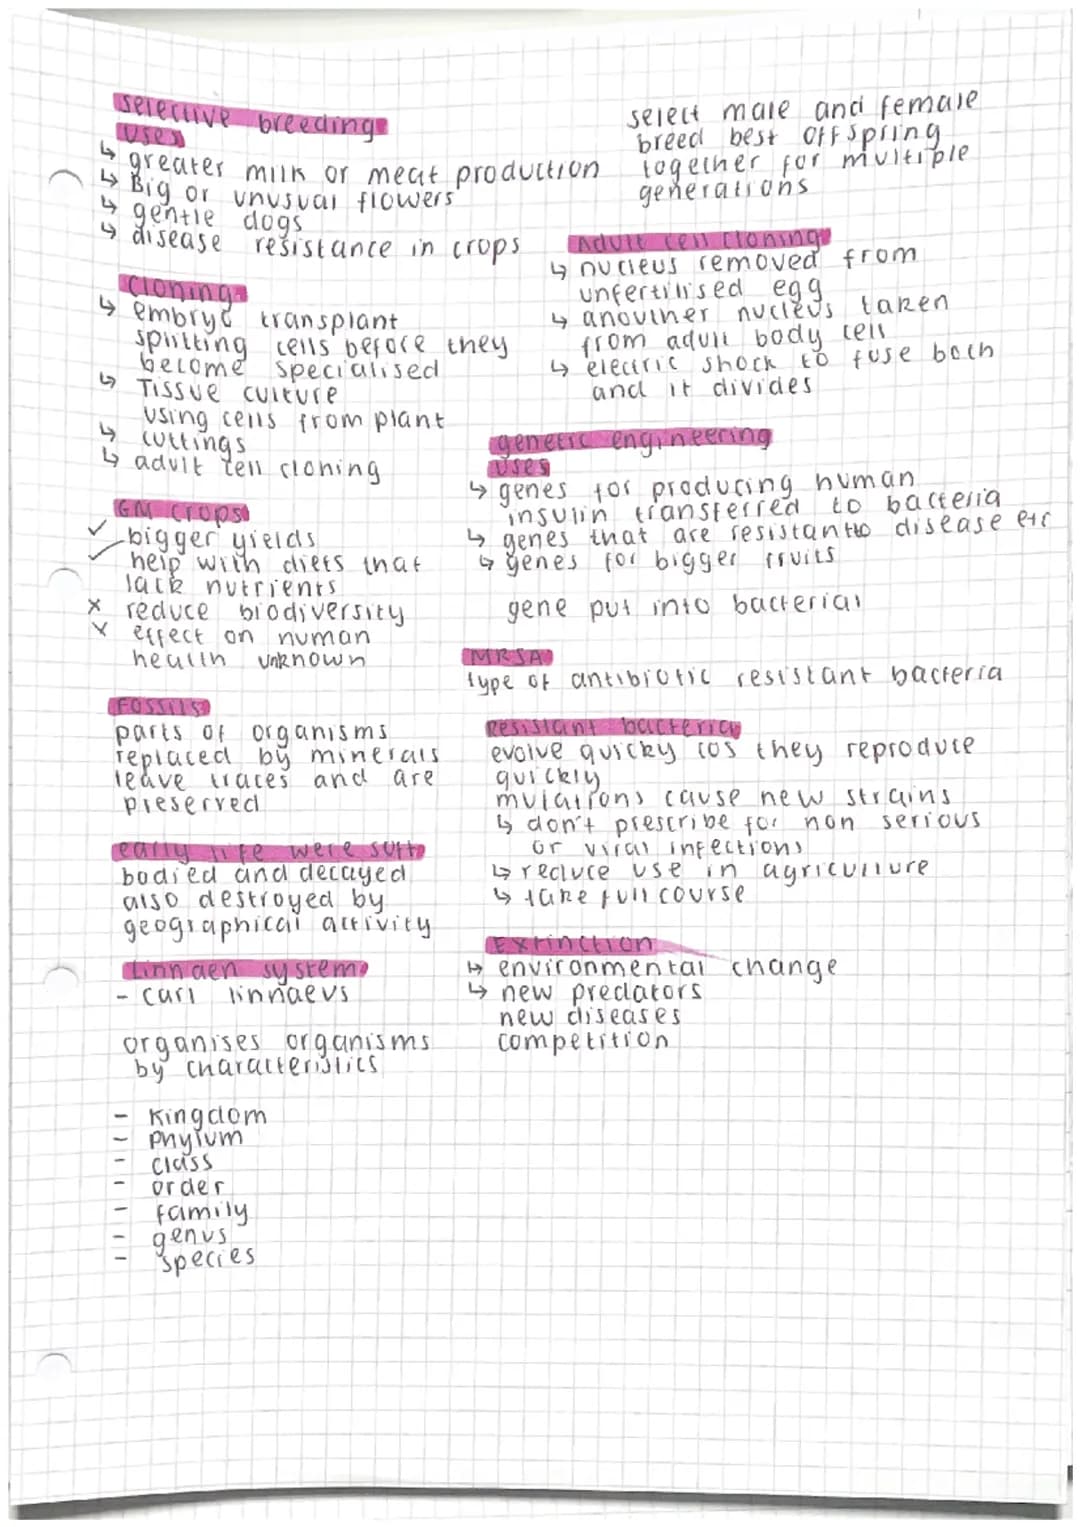 selective breeding
uses
↳ greater milk or meat production
↳ Big or unusual flowers
↳ gentle dogs
↳ disease resistance in crops
select male and female
breed best offspring
together for multiple
generations
Cloning
↳ embryo transplant
splitting cells before they
become specialised
↳ Tissue culture
using cells from plant
↳ cuttings
↳ adult cell cloning
Adult cell cloning
↳ nucleus removed from
unfertilised egg
↳ anouther nucleus taken
from adult body cell
↳ electric shock to fuse both
and it divides
GM crops
✓ bigger yields
✓ help with diets that
lack nutrients
x reduce biodiversity
x effect on human
health unknown
genetic engineering
uses
↳ genes for producing human
insulin transferred to bacteria
↳ genes that are resistant to disease etc
↳ genes for bigger fruits
gene put into bacterial
MRSA
type of antibiotic resistant bacteria
Fossils
parts of organisms
replaced by minerals
leave traces and are
preserved
Resistant bacteria
evolve quicky cos they reproduce
quickly
mutations cause new strains
↳ don't prescribe for non serious
or viral infections
↳ reduce use in agriculture
↳ take full course
early life were soft
bodied and decayed
also destroyed by
geographical activity
Extinction
↳ environmental change
↳ new predators
new diseases
competition
Linnaen system
- Carl linnaeus
organises organisms
by characteristics
- Kingdom
- Phylum
- class
- order
- family
- genus
- species